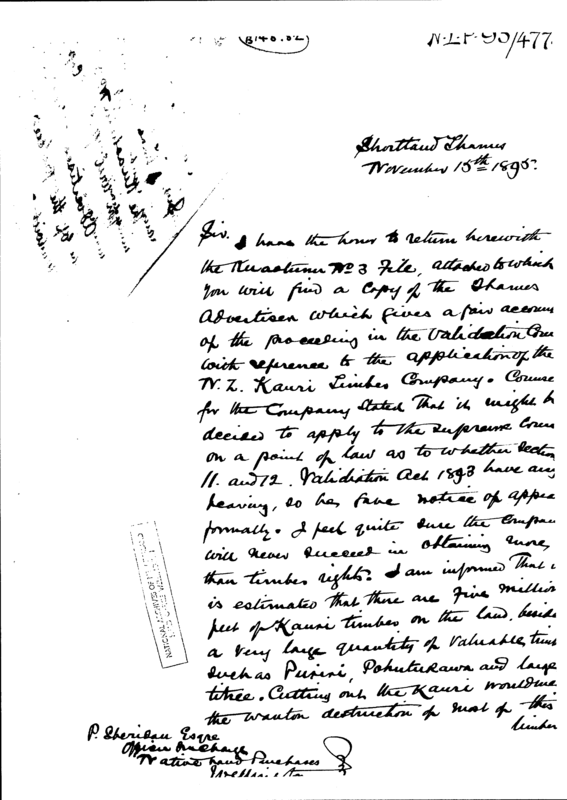 B146.82
N.L.P. 95/477
Shortland Thames
November 15th 1895.
Sir,
I have the honor to return herewith
the Kuaotunu No 3 File, attached to which
you will find a copy of the Thames
Advertiser which gives a fair accoun
of the proceeding in the Validation Cour
with reference to the application of the
N.Z. Kauri Timber Company. Counse
for the Company stated that it might b
decided to apply to the Supreme Cour
on a point of law as to whether Section
11. and 12. Validation Act 1893 have any
bearing, so he gave notice of appea
formally. I feel quite sure the Compan
will never succeed in obtaining more
than timber rights. I am informed that i
is estimated that there are five million
feet of Kauri timber on the land, beside
a very large quantity of valuable timb
such as Puriri, Pohutukawa and large
titree. Cutting out the Kauri would me
the wanton destruction of most of this
timber
P. Sheridan Esqre
Officer in charge
Native Land Purchases
Wellington
NATIONAL ARCHIVES OF NEW ZEALAND